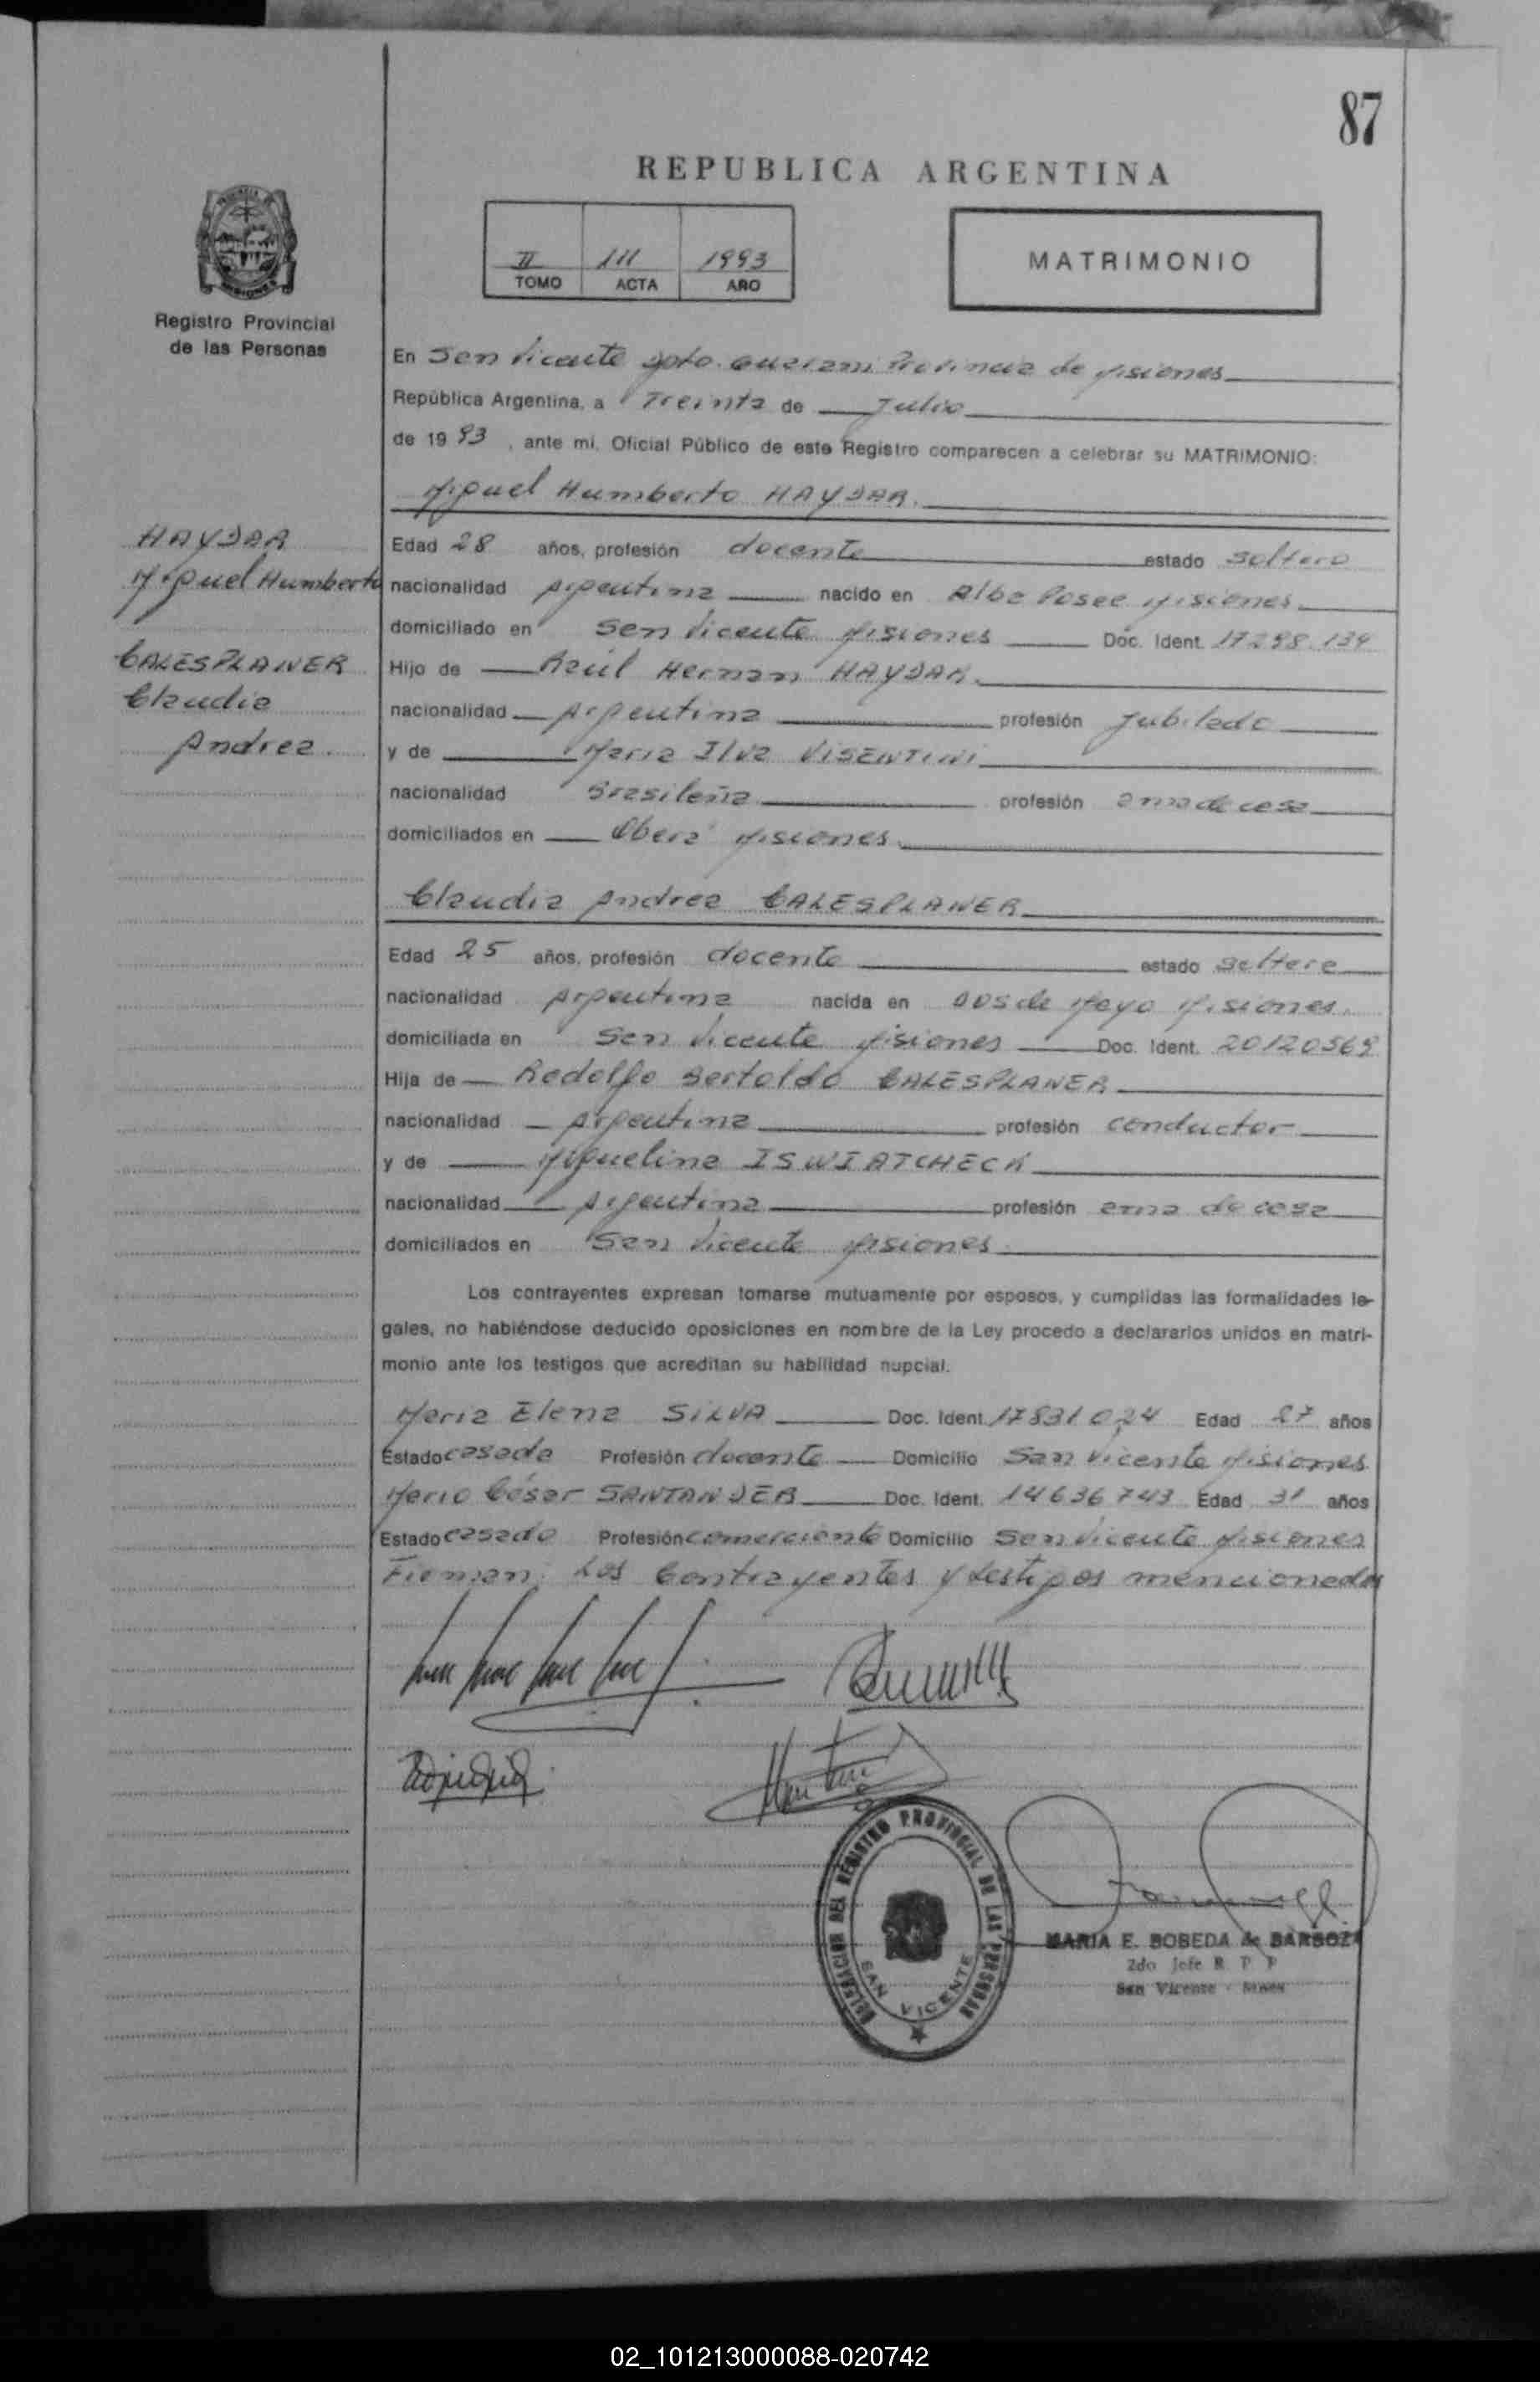 87
REPUBLICA ARGENTINA
II 111 1993
TOMO ACTA AÑO
MATRIMONIO
Registro Provincial
de las Personas
En San Vicente Dpto. Guarani Provincia de Misiones
República Argentina, a Treinta de Julio
de 1993, ante mi, Oficial Público de este Registro comparecen a celebrar su MATRIMONIO:
Miguel Humberto HAYDAR.
HAYDAR
Miguel Humberto
CALESPLANER
Claudia
Andrea.
Edad 28 años, profesión docente estado soltero
nacionalidad Argentina nacido en Alba Posee Misiones
domiciliado en San Vicente Misiones Doc. Ident. 17298.134
Hijo de Raúl Hernan HAYDAR.
nacionalidad Argentina profesión Jubilado
y de Maria Ilva VISENTINI
nacionalidad Brasileña profesión ama de casa
domiciliados en Oberá Misiones.
Claudia Andrea CALESPLANER
Edad 25 años, profesión docente estado soltera
nacionalidad Argentina nacida en Dos de Mayo Misiones.
domiciliada en San Vicente Misiones Doc. Ident. 20120569
Hija de Rodolfo Bertoldo CALESPLANER
nacionalidad Argentina profesión conductor
y de Miguelina ISWIATCHECK
nacionalidad Argentina profesión ama de casa
domiciliados en San Vicente Misiones.
Los contrayentes expresan tomarse mutuamente por esposos, y cumplidas las formalidades le-
gales, no habiéndose deducido oposiciones en nombre de la Ley procedo a declararlos unidos en matri-
monio ante los testigos que acreditan su habilidad nupcial.
Maria Elena SILVA Doc. Ident. 17831024 Edad 27 años
Estado casada Profesión docente Domicilio San Vicente Misiones
Mario César SANTANDER Doc. Ident. 14636743 Edad 31 años
Estado casado Profesión comerciante Domicilio San Vicente Misiones
Firman: Los Contrayentes y testigos mencionados
DELEGACION DEL REGISTRO PROVINCIAL DE LAS PERSONAS
SAN VICENTE
MARIA E. BOBEDA de BARBOZA
2do Jefe R P P
San Vicente - Mnes
02_101213000088-020742